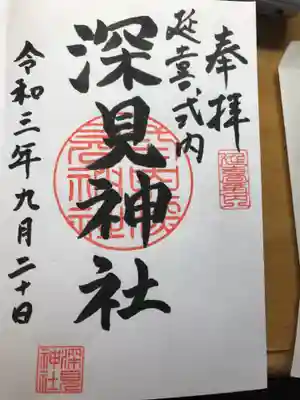 奉拝
延喜式内
深見神社
令和三年九月二十日
深見
神社